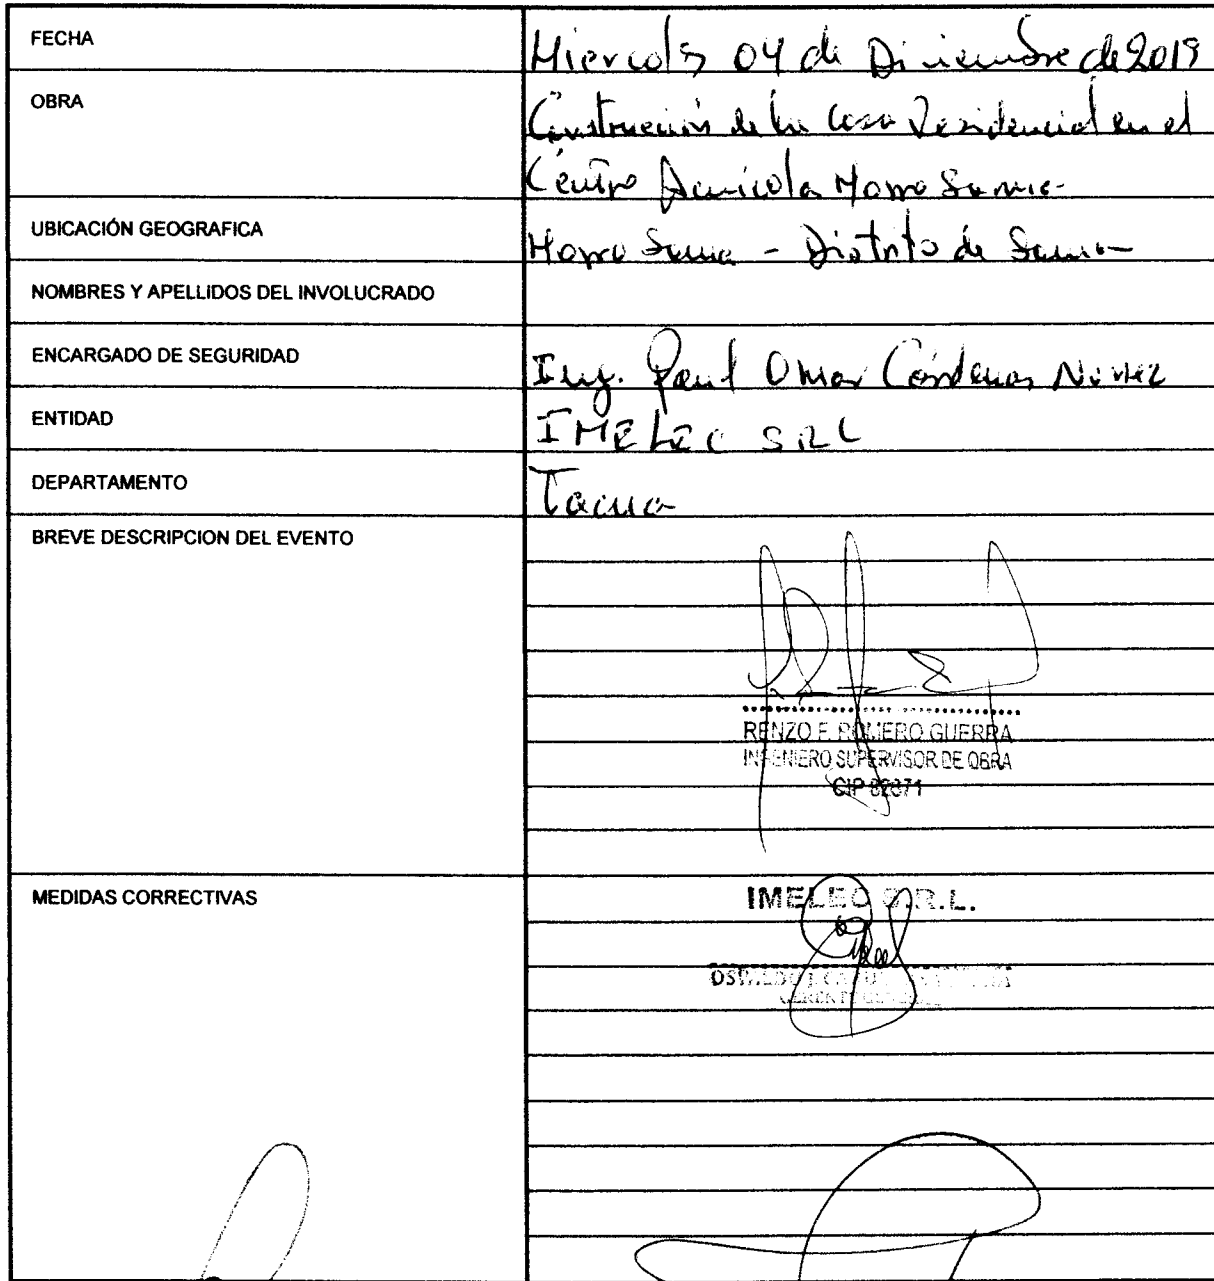 FECHA
Miercoles 04 de Diciembre de 2019
OBRA
Construcción de la Casa Residencial en el
Centro Acuicola Morro Sama
UBICACIÓN GEOGRAFICA
Morro Sama - Distrito de Sama
NOMBRES Y APELLIDOS DEL INVOLUCRADO
ENCARGADO DE SEGURIDAD
Ing. Paul Omar Cárdenas Nuñez
ENTIDAD
IMELEC SRL
DEPARTAMENTO
Tacna
BREVE DESCRIPCION DEL EVENTO
RENZO F. ROMERO GUERRA
INGENIERO SUPERVISOR DE OBRA
CIP
MEDIDAS CORRECTIVAS
IMELEC S.R.L.
GERENTE GENERAL